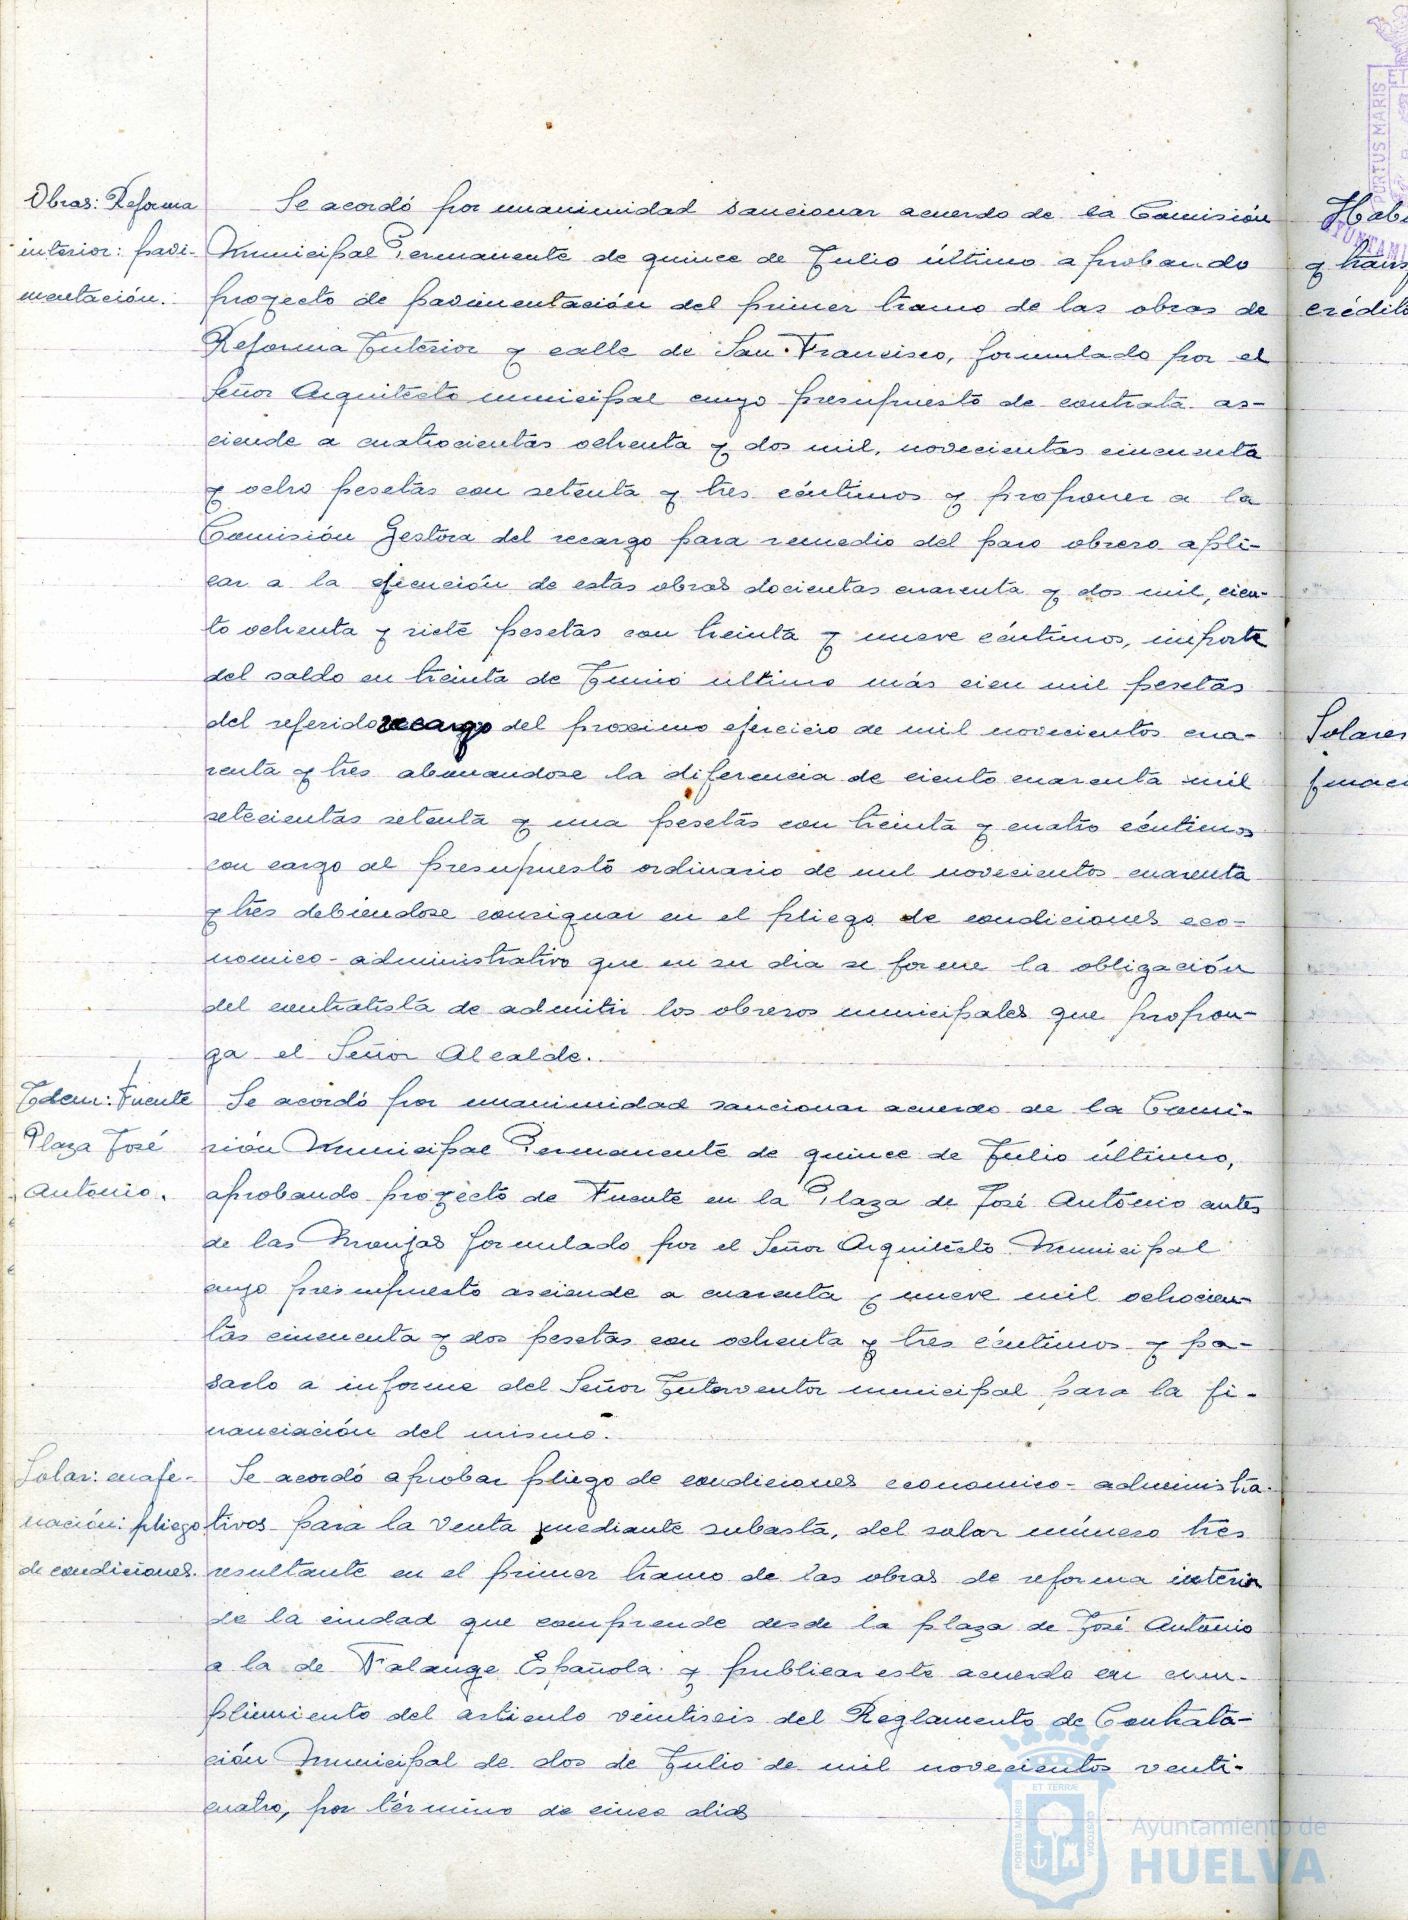 Obras: Reforma
interior: pavi-
mentación.
Se acordó por unanimidad sancionar acuerdo de la Comisión
Municipal Permanente de quince de Julio último aprobando
proyecto de pavimentación del primer tramo de las obras de
Reforma Interior y calle de San Francisco, formulado por el
Señor Arquitecto municipal cuyo presupuesto de contrata as-
ciende a cuatrocientas ochenta y dos mil, novecientas cincuenta
y ocho pesetas con setenta y tres céntimos y proponer a la
Comisión Gestora del recargo para remedio del paro obrero apli-
car a la ejecución de estas obras docientas cuarenta y dos mil, cien-
to ochenta y siete pesetas con treinta y nueve céntimos, importe
del saldo en treinta de Junio ultimo más cien mil pesetas
del referido recargo del proximo ejercicio de mil novecientos cua-
renta y tres abonandose la diferencia de ciento cuarenta mil
setecientas setenta y una pesetas con treinta y cuatro céntimos
con cargo al presupuesto ordinario de mil novecientos cuarenta
y tres debiendose consignar en el pliego de condiciones eco-
nomico-administrativo que en su dia se forme la obligación
del contratista de admitir los obreros municipales que propon-
ga el Señor Alcalde.
Idem: Fuente
Plaza José
Antonio.
Se acordó por unanimidad sancionar acuerdo de la Comi-
sión Municipal Permanente de quince de Julio último,
aprobando proyecto de Fuente en la Plaza de José Antonio antes
de las Monjas formulado por el Señor Arquitecto Municipal
cuyo presupuesto asciende a cuarenta y nueve mil ochocien-
tas cincuenta y dos pesetas con ochenta y tres céntimos y pa-
sarlo a informe del Señor Interventor municipal para la fi-
nanciación del mismo.
Solar: enaje-
nación: pliego
de condiciones.
Se acordó aprobar pliego de condiciones economico-administra-
tivos para la venta mediante subasta, del solar número tres
resultante en el primer tramo de las obras de reforma interior
de la ciudad que comprende desde la plaza de José Antonio
a la de Falange Española y publicar este acuerdo en cum-
plimiento del articulo veintiseis del Reglamento de Contrata-
ción Municipal de dos de Julio de mil novecientos venti-
cuatro, por término de cinco dias
y trans
crédito
Solares
PORTUS MARIS
ET TERRÆ
CUSTODIA
Ayuntamiento de
HUELVA